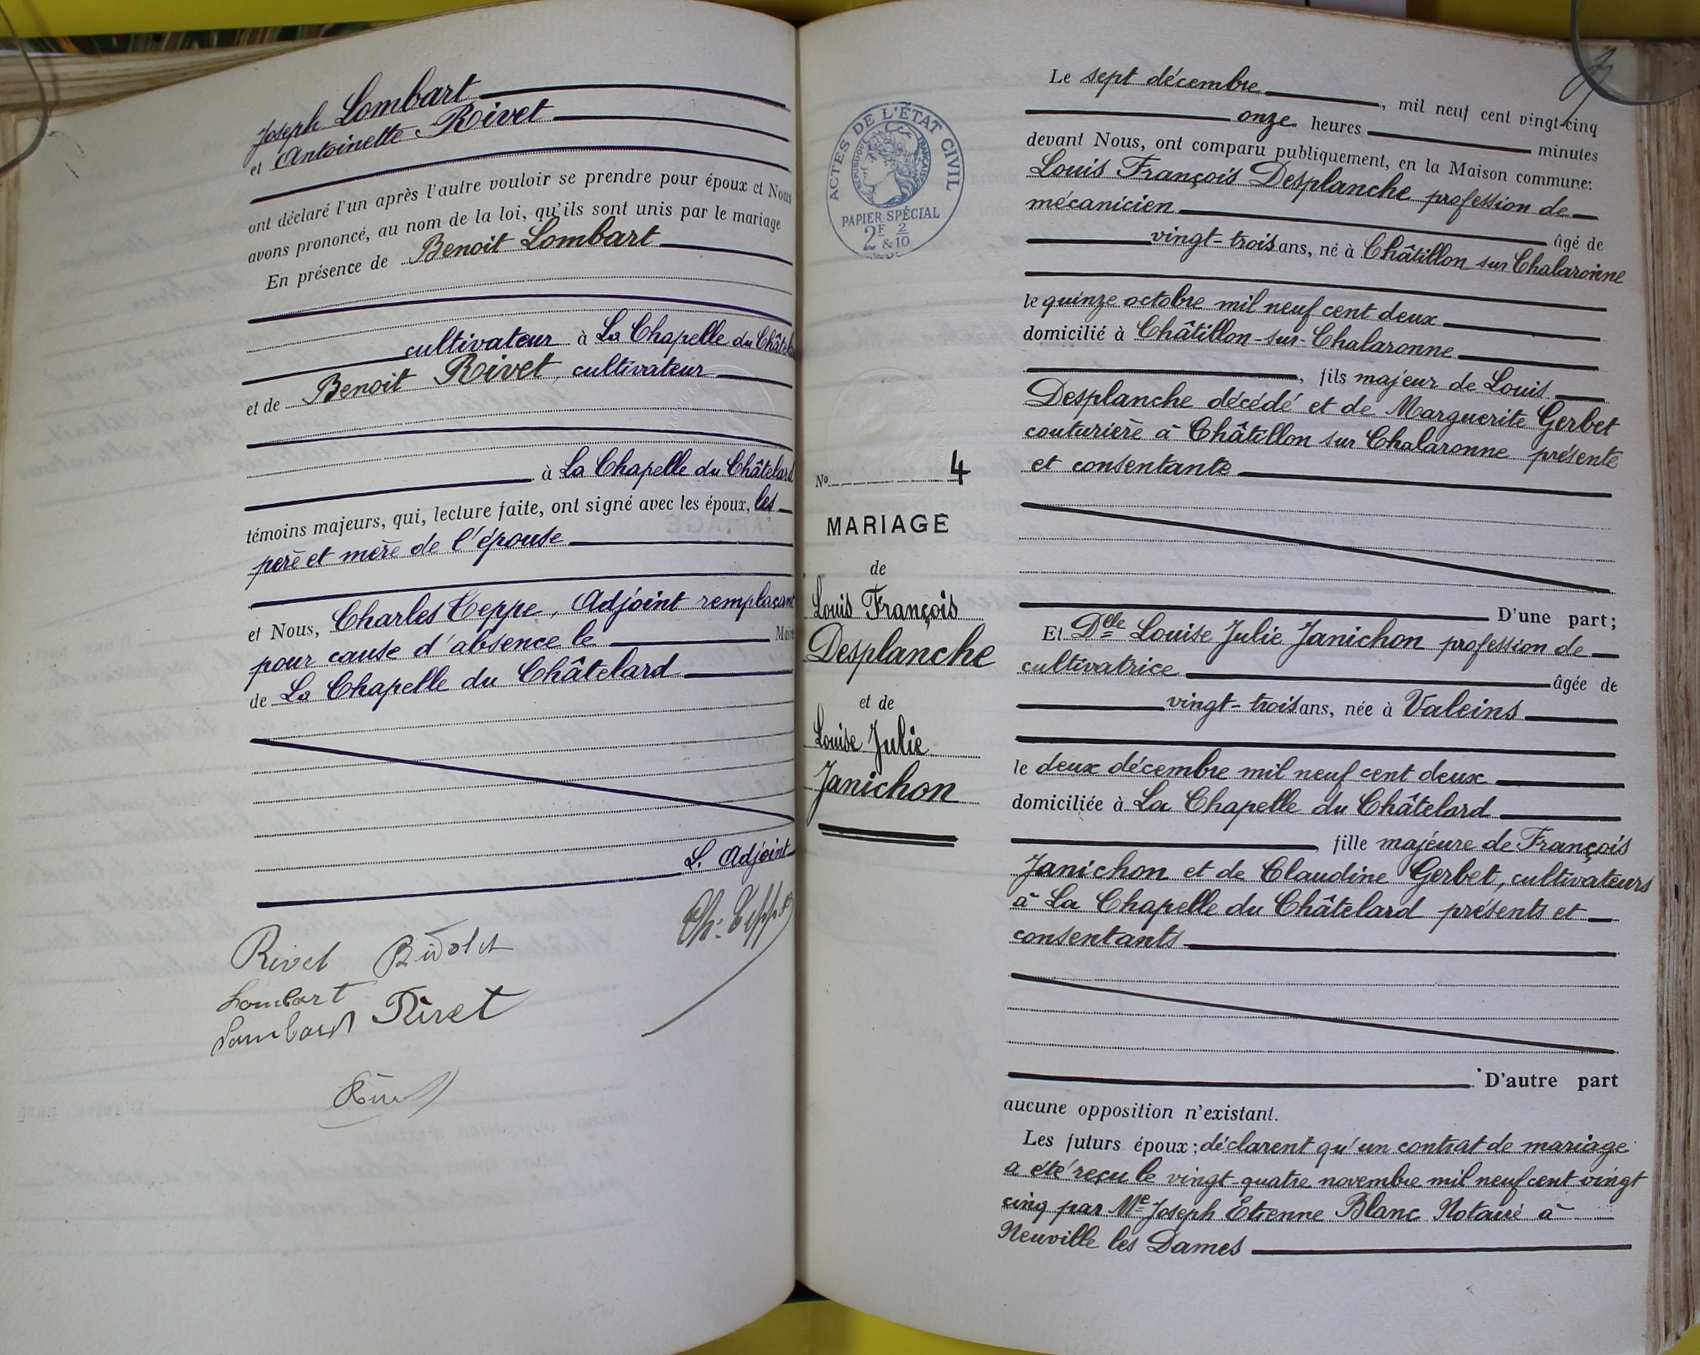 Joseph Lombart
et Antoinette Rivet
ont déclaré l'un après l'autre vouloir se prendre pour époux et Nous
avons prononcé, au nom de la loi, qu'ils sont unis par le mariage
En présence de Benoit Lombart
cultivateur à La Chapelle du Châtel
et de Benoit Rivet, cultivateur
à La Chapelle du Châtelard
témoins majeurs, qui, lecture faite, ont signé avec les époux, les
père et mère de l'épouse
et Nous, Charles Teppe, Adjoint remplaçant
pour cause d'absence le Maire
de La Chapelle du Châtelard
L. Adjoint
Ch. Teppe
Rivet
Lombart
Lombard Rivet
ACTES DE L'ÉTAT CIVIL
PAPIER SPÉCIAL
2F 2
&10
No 4
MARIAGE
de
Louis François
Desplanche
et de
Louise Julie
Janichon
Le sept décembre, mil neuf cent vingt-cinq
onze heures minutes
devant Nous, ont comparu publiquement, en la Maison commune:
Louis François Desplanche profession de
mécanicien âgé de
vingt-trois ans, né à Châtillon sur Chalaronne
le quinze octobre mil neuf cent deux
domicilié à Châtillon-sur-Chalaronne
, fils majeur de Louis
Desplanche décédé et de Marguerite Gerbet
couturière à Châtillon sur Chalaronne présente
et consentante
D'une part;
Et Dlle Louise Julie Janichon profession de
cultivatrice âgée de
vingt-trois ans, née à Valeins
le deux décembre mil neuf cent deux
domiciliée à La Chapelle du Châtelard
fille majeure de François
Janichon et de Claudine Gerbet, cultivateurs
à La Chapelle du Châtelard présents et
consentants
D'autre part
aucune opposition n'existant.
Les futurs époux; déclarent qu'un contrat de mariage
a été reçu le vingt-quatre novembre mil neuf cent vingt
cinq par Me Joseph Etienne Blanc Notaire à
Neuville les Dames